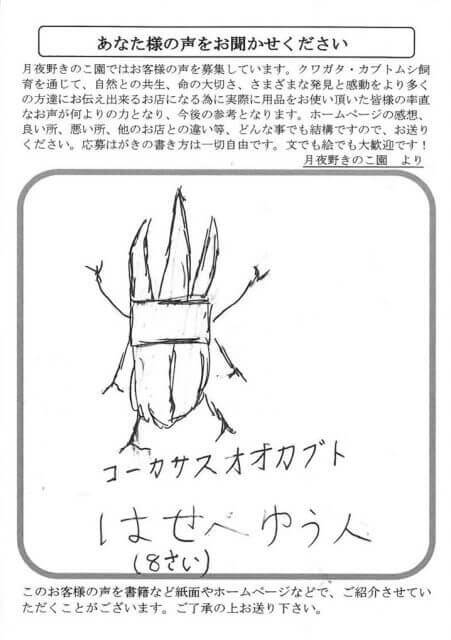 あなた様の声をお聞かせください
月夜野きのこ園ではお客様の声を募集しています。クワガタ・カブトムシ飼
育を通じて、自然との共生、命の大切さ、さまざまな発見と感動をより多く
の方達にお伝え出来るお店になる為に実際に用品をお使い頂いた皆様の率直
なお声が何よりの力となり、今後の参考となります。ホームページの感想、
良い所、悪い所、他のお店との違い等、どんな事でも結構ですので、お送り
ください。応募はがきの書き方は一切自由です。文でも絵でも大歓迎です！
月夜野きのこ園　より
コーカサスオオカブト
はせべゆう人
(8さい)
このお客様の声を書籍など紙面やホームページなどで、ご紹介させてい
ただくことがございます。ご了承の上お送り下さい。